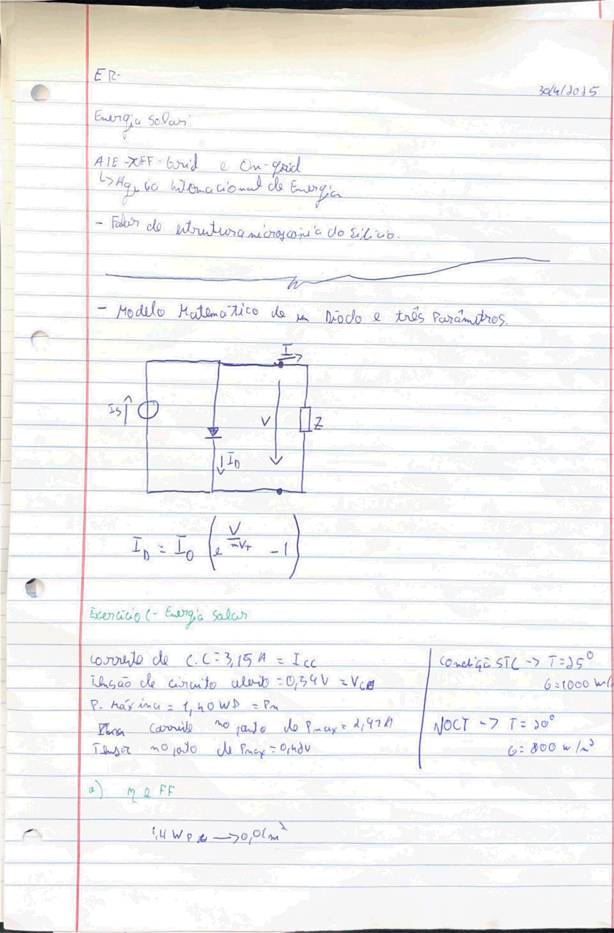 ER-
30/4/2025
Energia Solar
AIE → OFF-Grid e On-grid
↳ Agência Internacional de Energia
- Falar de estrutura microscópica do Silício.
- Modelo Matemático de um Díodo e três Parâmetros.
I
Is
V
Z
I_D
I_D = I_0 (e^(V/mV_T) - 1)
Exercício 1 - Energia Solar
corrente de C.C = 3,15 A = I_cc
Tensão de circuito aberto = 0,54V = V_ca
P. máxima = 1,40 WP = Pm
corrente no ponto de Pmax = 2,91 A
Tensão no ponto de Pmax = 0,48V
Condição STC → T = 25°
G = 1000 w/
NOCT → T = 20°
G = 800 w/m²
a) η e FF
1,4 WP → 0,01 m²